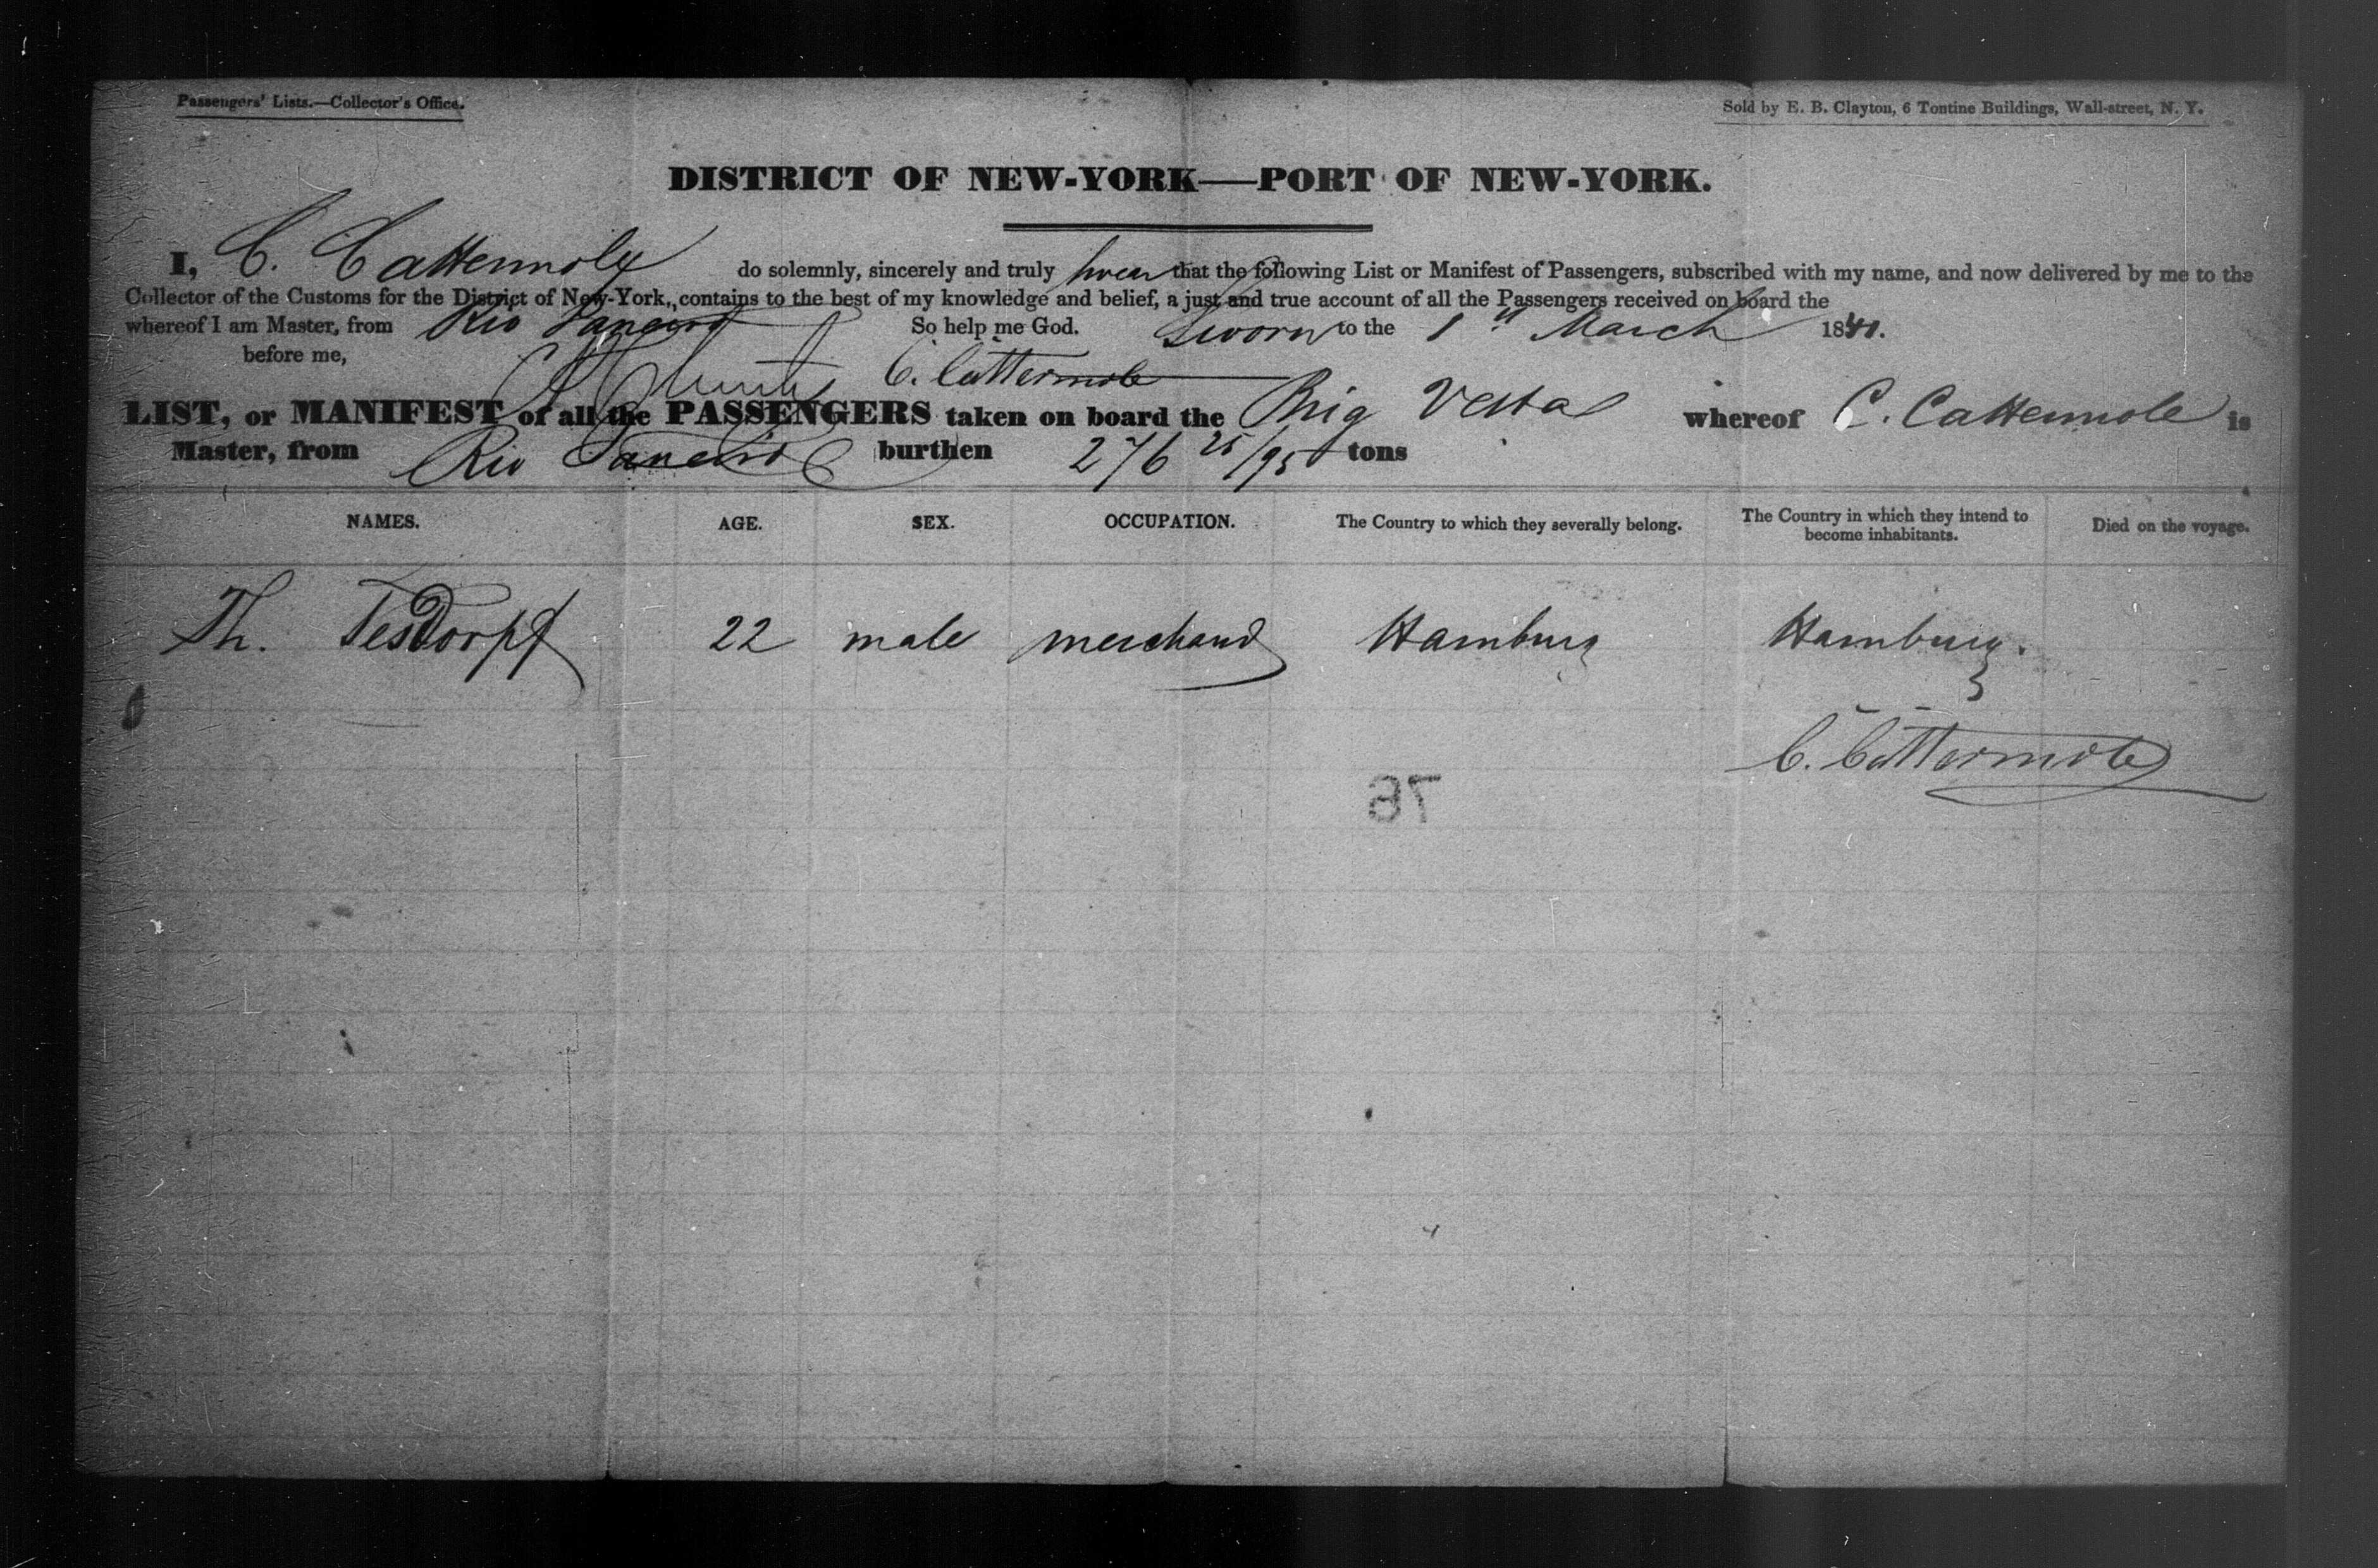 Passengers' Lists.—Collector's Office.
Sold by E. B. Clayton, 6 Tontine Buildings, Wall-street, N. Y.
DISTRICT OF NEW-YORK—PORT OF NEW-YORK.
I, C. Cattermole do solemnly, sincerely and truly swear that the following List or Manifest of Passengers, subscribed with my name, and now delivered by me to the
Collector of the Customs for the District of New-York, contains to the best of my knowledge and belief, a just and true account of all the Passengers received on board the
whereof I am Master, from Rio Janeiro So help me God. Sworn to the 1st March 1841.
before me,
C. Cattermole
LIST, or MANIFEST of all the PASSENGERS taken on board the Brig Vesta whereof C. Cattermole is
Master, from Rio Janeiro burthen 276 25/95 tons
NAMES. AGE. SEX. OCCUPATION. The Country to which they severally belong. The Country in which they intend to become inhabitants. Died on the voyage.
Th. Tesdorpf 22 male merchand Hamburg Hamburg.
C. Cattermole